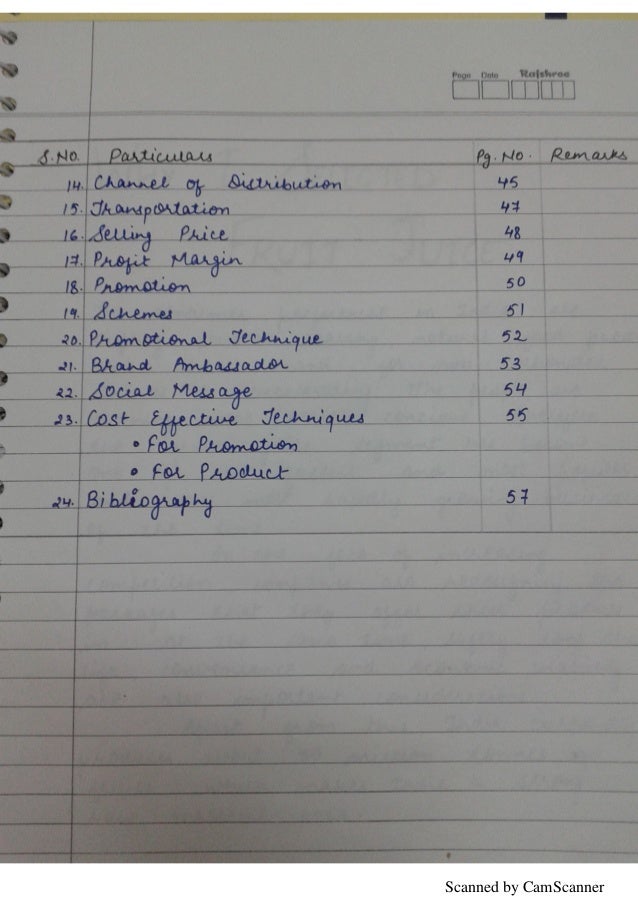 Page Date Rajshree
S.No. Particulars Pg. No. Remarks
14. Channel of Distribution 45
15. Transportation 47
16. Selling Price 48
17. Profit Margin 49
18. Promotion 50
19. Schemes 51
20. Promotional Technique 52
21. Brand Ambassador 53
22. Social Message 54
23. Cost Effective Techniques 55
• For Promotion
• For Product
24. Bibliography 57
Scanned by CamScanner